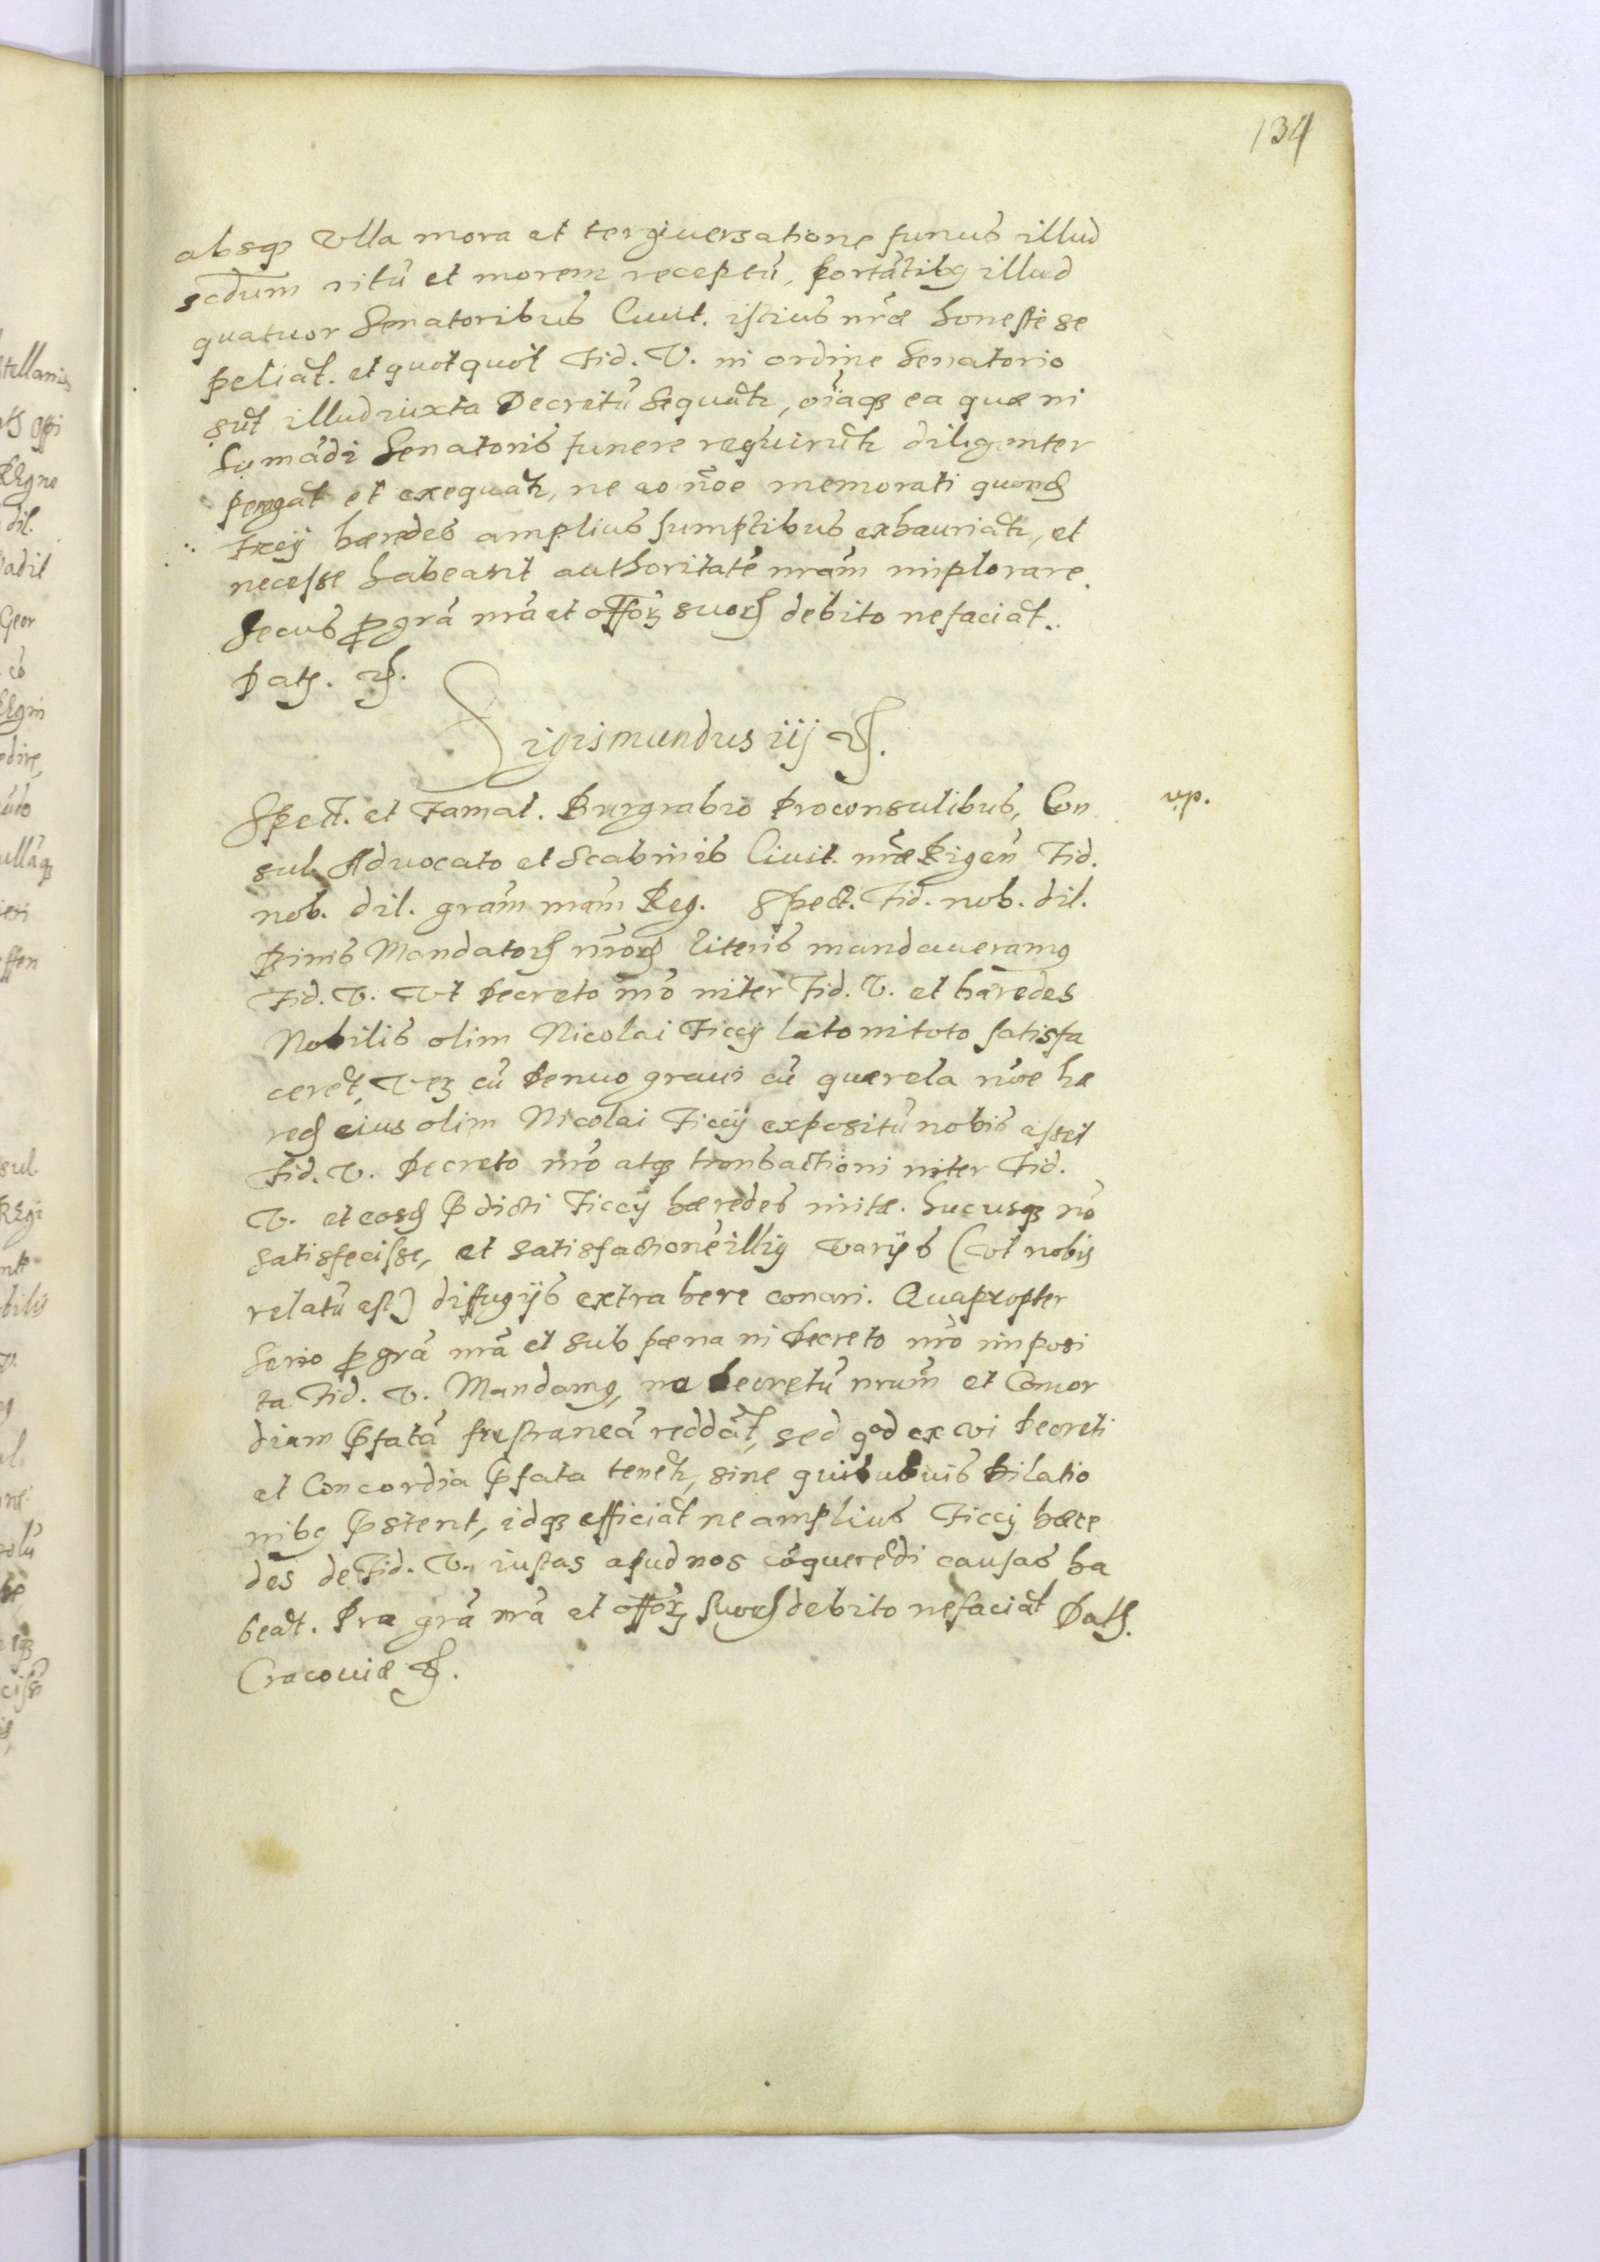 134
absq3 vlla mora et tergiuersatione funus illud
scdum ritū et morem receptū, portātibq illud
quatuor Senatoribus Ciuit. istius nr̄æ honeste se
peliāt. et quotquot Fid. V. in ordine Senatorio
sūt illud iuxta Decretū sequātr, oīaq3 ea quæ in
humādi Senatoris funere requirūtr diligenter
peragāt et exequātr, ne eo nōe memorati quond
Ficcij hæredes amplius sumptibus exhauriātr, et
necesse habeant authoritatē nrām implorare.
Secus p grā nrā et offōr suor debito ne faciāt.
Dat. etc.
Sigismundus iij etc.
Spect. et Famat. Burgrabio Proconsulibus, Con
sul. Aduocato et Scabinis Ciuit. nræ Rigen̄ Fid.
nob. dil. grām nrām Reg. Spect. Fid. nob. dil.
Binis Mandator nror literis mandaueramq
Fid. V. Vt Decreto nrō inter Fid. V. et hæredes
Nobilis olim Nicolai Ficcij lato in toto satisfa
cerēt, Ver cū denuo graui cū querela nōe hæ
red eius olim Nicolai Ficcij expositū nobis esset
Fid. V. Decreto nrō atq3 transactioni inter Fid.
V. et eosd pdicti Ficcij hæredes initæ. hucusq3 nō
satisfecisse, et satisfactionē illiq varijs (vt nobis
relatū est) diffugijs extrahere conari. Quapropter
Serio p grā nrā et sub pæna in Decreto nrō imposi
ta Fid. V. Mandamq, ne decretū nrum̄ et Concor
diam pfatā frustraneā reddāt, sed qod ex vi Decreti
et Concordia pfata tenētr, sine quibusuis dilatio
nibq pstent, idq3 efficiāt ne amplius Ficcij hære
des de Fid. V. iustas apud nos cōquerēdi causas ha
beāt. Pro grā nrā et offōr suor debito ne faciāt Dat.
Cracouiæ etc.
vp.